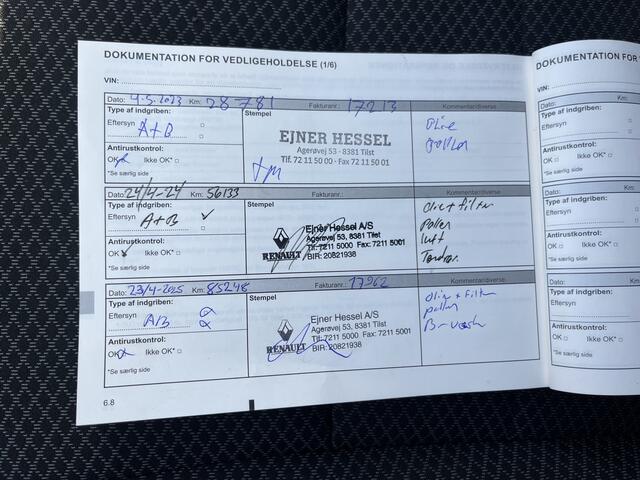 DOKUMENTATION FOR VEDLIGEHOLDELSE (1/6)
VIN:
Dato: 4-5-2023 Km: 28781 Fakturanr.: 17213 Kommentar/diverse
Type af indgriben:
Eftersyn A+B
Antirustkontrol:
OK Ikke OK*
*Se særlig side
Stempel
EJNER HESSEL
Agerøvej 53 - 8381 Tilst
Tlf. 72 11 50 00 - Fax 72 11 50 01
Olie
pollen
Dato: 24/4-24 Km: 56133 Fakturanr.: Kommentar/diverse
Type af indgriben:
Eftersyn A+B
Antirustkontrol:
OK Ikke OK*
*Se særlig side
Stempel
RENAULT
Ejner Hessel A/S
Agerøvej 53, 8381 Tilst
Tlf: 7211 5000 Fax: 7211 5001
BIR: 20821938
Olie + filter
Pollen
luft
Dato: 23/4-2025 Km: 85248 Fakturanr.: 17962 Kommentar/diverse
Type af indgriben:
Eftersyn A/B
Antirustkontrol:
OK Ikke OK*
*Se særlig side
Stempel
RENAULT
Ejner Hessel A/S
Agerøvej 53, 8381 Tilst
Tlf: 7211 5000 Fax: 7211 5001
BIR: 20821938
Olie + Filter
pollen
B-væske
6.8
DOKUMENTATION FOR
VIN:
Dato:
Type af indgriben:
Eftersyn
Antirustkontrol:
OK Ikke OK*
*Se særlig side
Dato:
Type af indgriben:
Eftersyn
Antirustkontrol:
OK Ikke OK*
*Se særlig side
Dato:
Type af indgriben:
Eftersyn
Antirustkontrol:
OK Ikke OK*
*Se særlig side